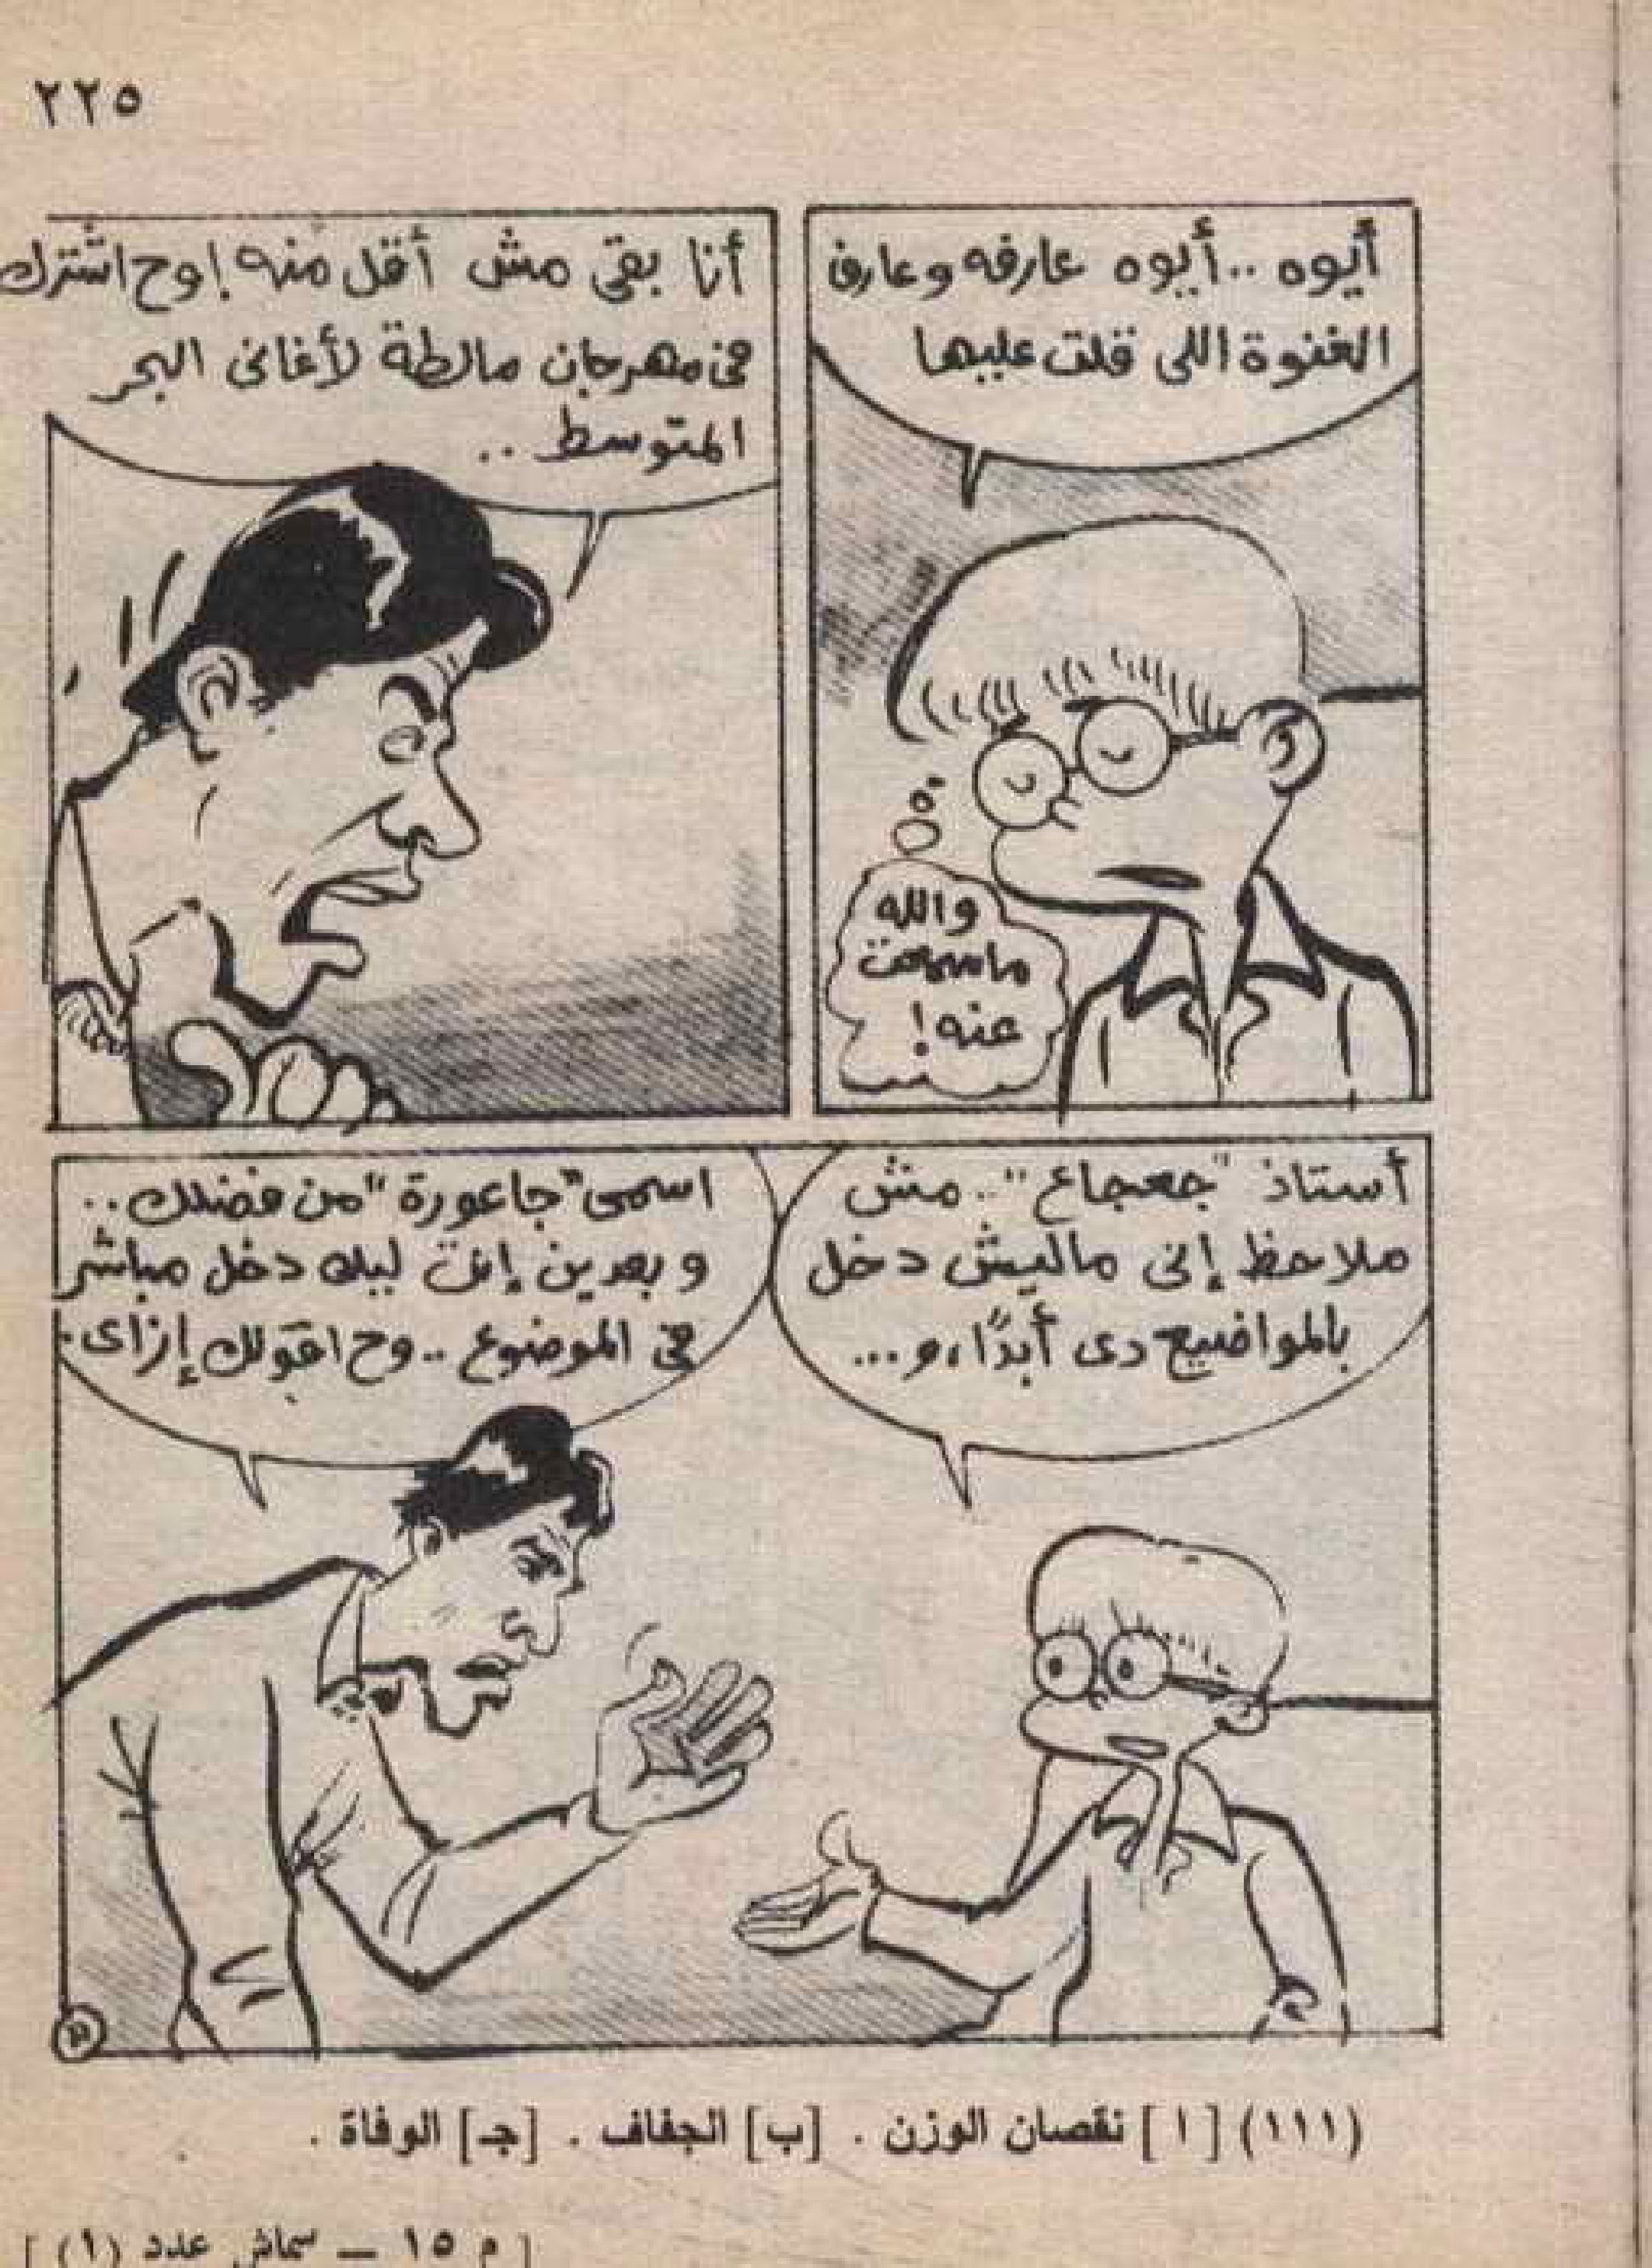 ٢٢٥
أيوه .. أيوه عارفه وعارف
الغنوة اللى قلت عليها
والله
ماسمعت
عنه !
أنا بقى مش أقل منه ! وح اشترك
فى مهرجان مالطة لأغانى البحر
المتوسط ..
أستاذ "جعجاع" .. مش
ملاحظ إنى ماليش دخل
بالمواضيع دى أبدًا، و ...
اسمى "جاعورة" من فضلك ..
وبعدين إنت ليك دخل مباشر
فى الموضوع .. وح اقولك إزاى .
(١١١) [ ا ] نقصان الوزن . [ب] الجفاف . [جـ] الوفاة .
[ م ١٥ ــ سماش عدد (١) ]